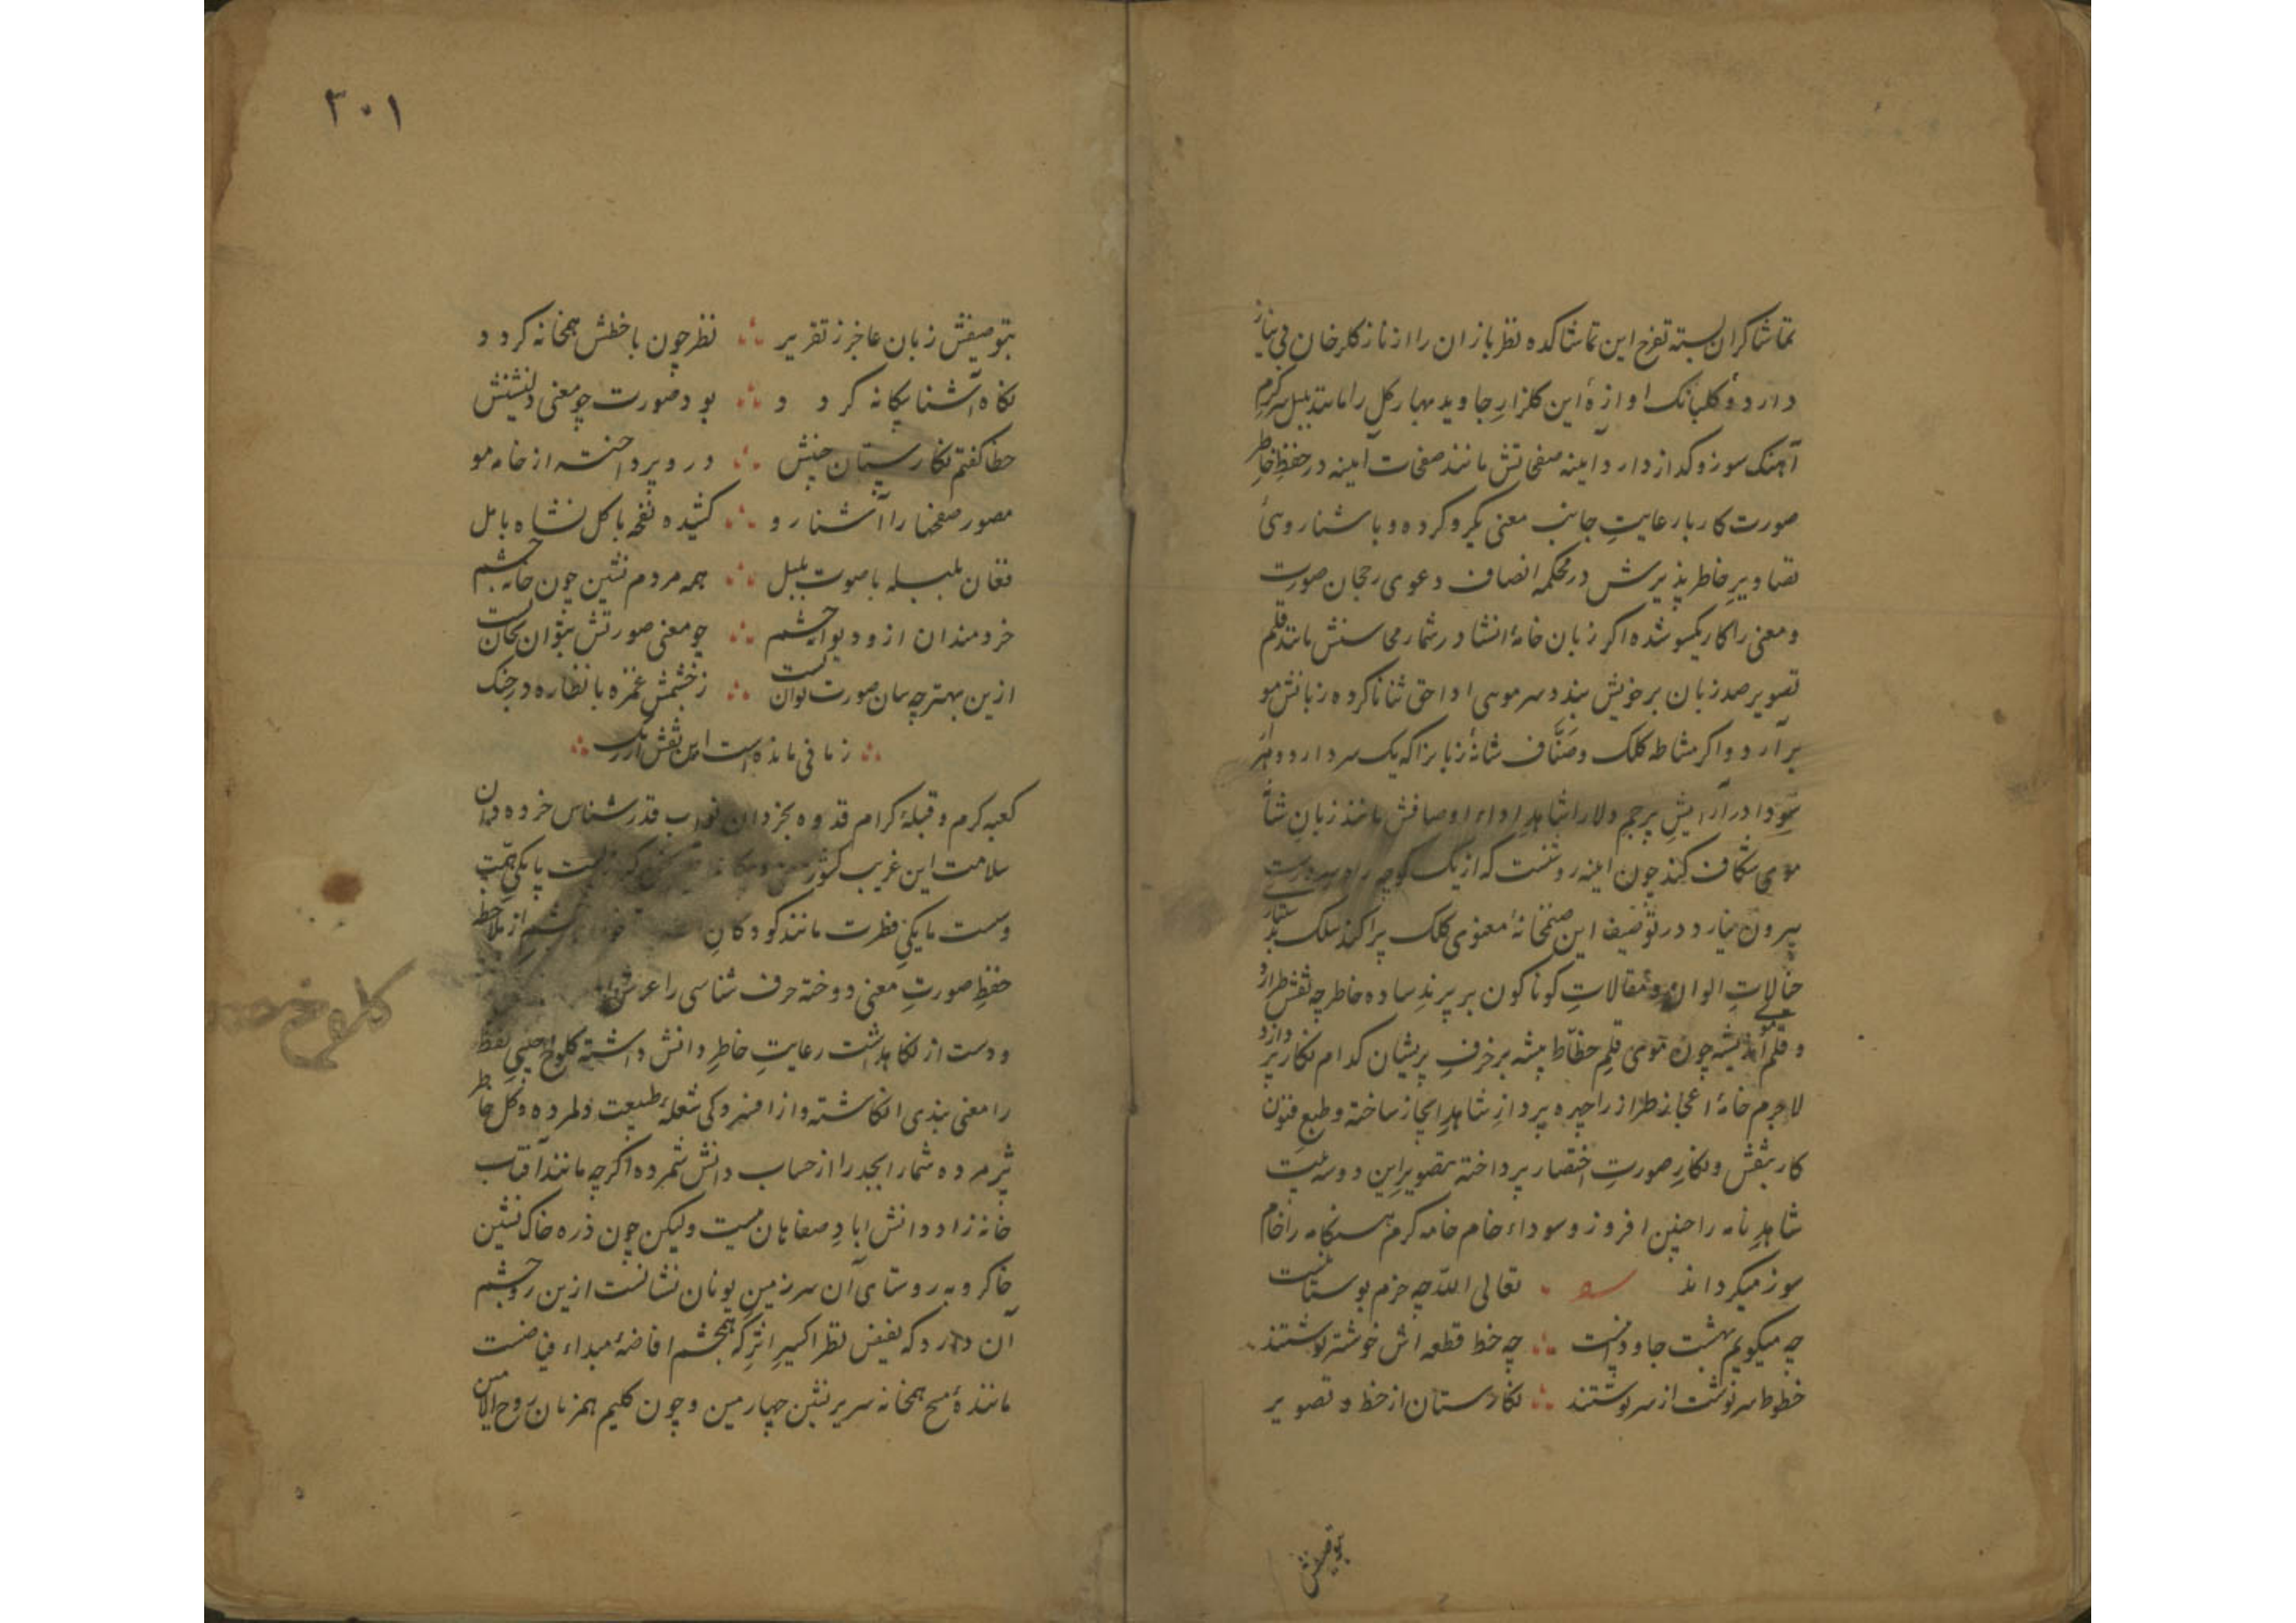 تماشاکران بسته تفرج این تماشاکده نظربازان را از ناز کلرخان بی نیاز
دارد و کلبانک اوازهٔ این کلزار جاوید بهار کل را مانند بلبل سرکرم
آهنک سوز و کداز دارد اینه صفحاتش مانند صفحات آینه در حفظ خاطر
صورت کار با رعایت جانب معنی یکرو کرده و با شناروئی
تصاویر خاطرپذیرش در محکمه انصاف دعوی رجحان صورت
و معنی را کار یکسو شده اکر زبان خامهٔ انشا در شمار محاسنش مانند قلم
تصویر صد زبان بر خویش بندد سر موی ادا حق ثنا نا کرده زبانش مو
برآرد و اکر مشاطه کلک وصّاف شانهٔ زبانرا که یک سر دارد و هزار
سودا در آرایش پرچم دلارا شاهد اداء اوصافش مانند زبان شانه
موی شکاف کند چون اینه روشنست که از یک کوچه راه
بیرون نیارد و در توصیف این صنمخانهٔ معنوی کلک پراکنده سلک
خیالات الوان و مقالات کوناکون بر پرند ساده خاطر چه نقش طرازد
و قلم اندیشه چون موی قلم خطّاط پیشه بر حرف پریشان کدام نکار پردازد
لاجرم خامهٔ اعجاز طراز را چهره پرداز شاهد ایجاز ساخته و طبع فنون
کار بنقش و نکار صورت اختصار پرداخته بتصویر این دو سه بیت
شاهد نامه را چنین افروز و سوداء خام خامه کرم هنکامه را خام
سوز میکرداند تعالی الله چه خرم بوستانست
چه میکویم بهشت جاودانست چه خط قطعه اش خوشتر نوشتند
خطوط سرنوشت از سر نوشتند نکارستان از خط و تصویر
بتوصیفش
۳۰۱
بتوصیفش زبان عاجز ز تقریر نظر چون با خطش همخانه کردد
نکاه آشنا بیکانه کردد بود صورت چو معنی دلنشینش
خطا کفتم نکارستان چینش در و پرداخته از خامه مو
مصور صفحها را آشنا رو کشیده نغمه با کل نشاه با مل
فغان بلبله با صوت بلبل همه مردم نشین چون خانه چشم
خردمندان ازو دیوانه چشم چو معنی صورتش بتوان بجان بست
ازین بهتر چه سان صورت توان بست ز خشمش غمزه با نظاره در جنک
زمانی مانده است این نقش ارژنک
کعبه کرم و قبلهٔ کرام قدوه بخردان نواب قدرشناس خرده دان
سلامت این غریب کشور پاکی همت
دست مایکی فطرت مانند کودکان چشم از ملاحظه
حفظ صورت معنی دوخته حرف شناسی را عرش
و دست از نکاهداشت رعایت خاطر دانش داشته کلوخ چینی لفظ
را معنی بندی انکاشته و از افسردکی شعلهٔ طبیعت دلمرده و کل خاطر
پژمرده شمار ابجد را از حساب دانش شمرده اکرچه مانند آفتاب
خانه زاد دانش اباد صفاهان نیست ولیکن چون ذره خاک نشین
خاکروبه روستای آن سرزمین یونان نشانست ازین رو چشم
آن دارد که بفیض نظر اکسیر اثر که همچشم افاضهٔ مبداء فیاضست
مانندهٔ مسیح همخانه سریرنشین چهارمین و چون کلیم همزبان روح الامین
کلوخ